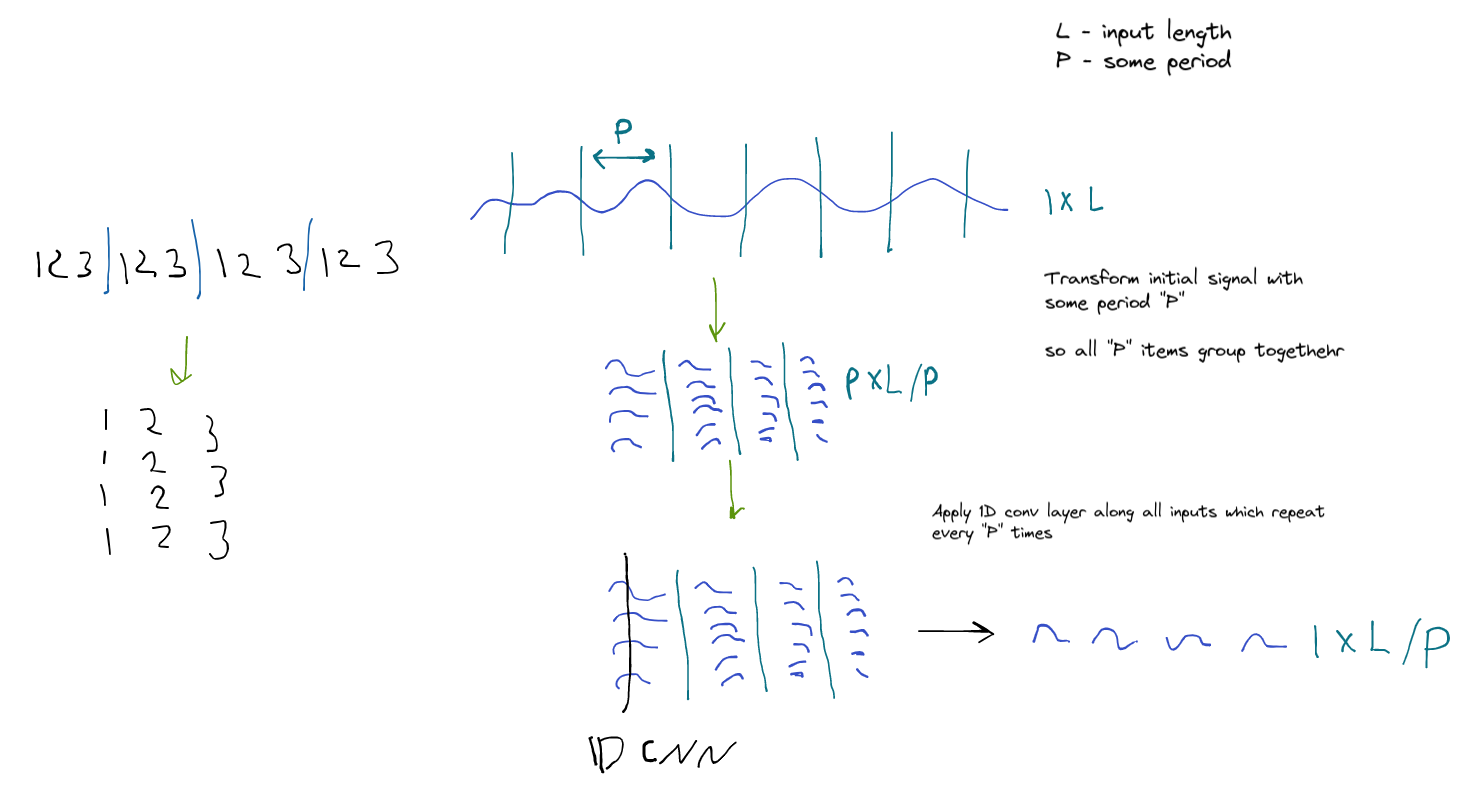 L - input length
P - some period
P
1 x L
123|123|123|123
Transform initial signal with
some period "P"
so all "P" items group togethehr
P x L/P
1 2 3
1 2 3
1 2 3
1 2 3
Apply 1D conv layer along all inputs which repeat
every "P" times
1 x L/P
1D CNN